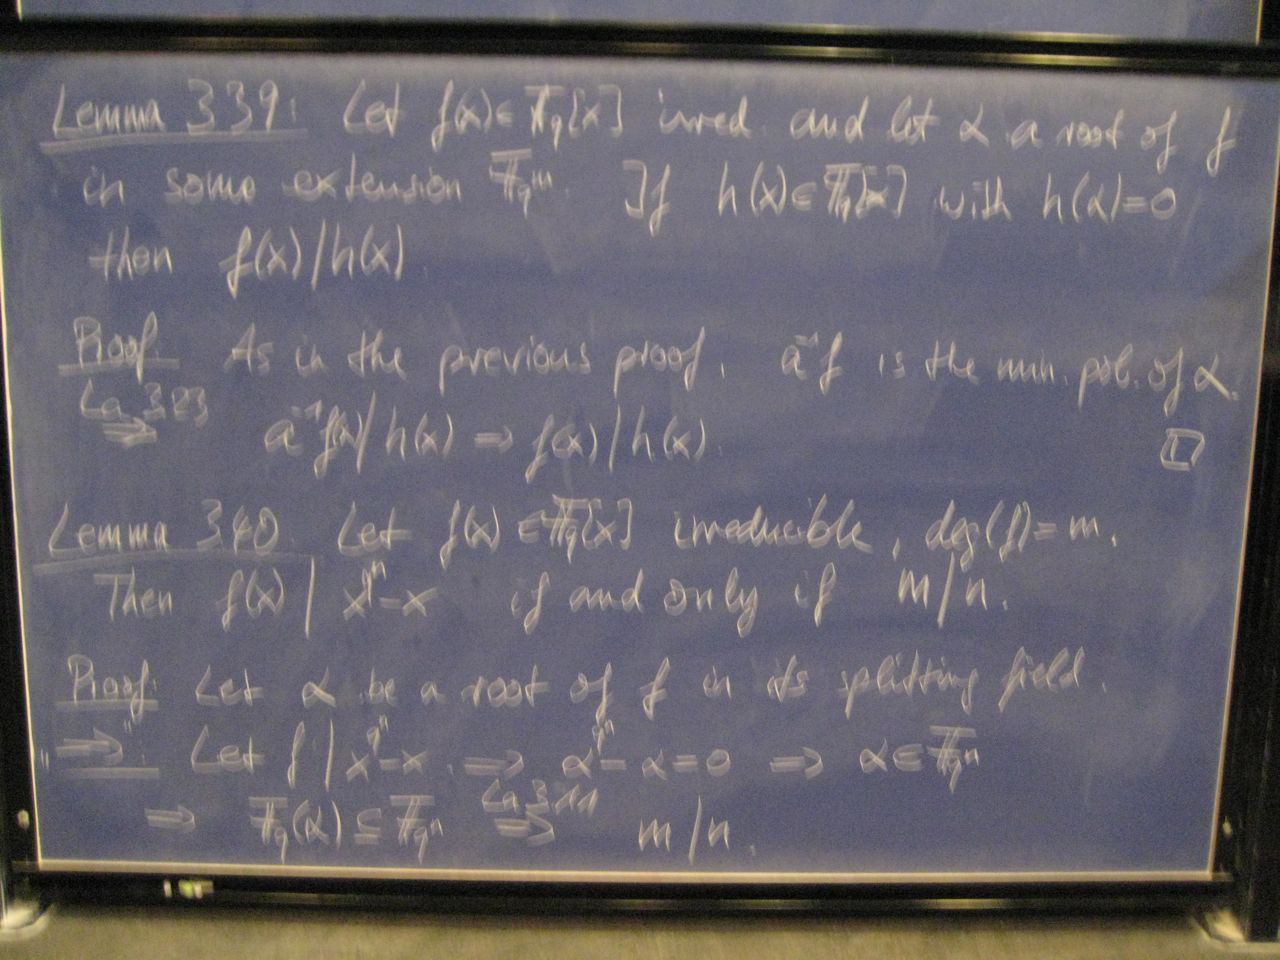 Lemma 339: Let f(x) ∈ 𝔽_q[x] irred. and let α a root of f
in some extension 𝔽_{q^m}. If h(x) ∈ 𝔽_q[x] with h(α)=0
then f(x)/h(x)
Proof. As in the previous proof, a⁻¹f is the min. pol. of α.
La 323 ⇒ a⁻¹f(x)/h(x) ⇒ f(x)/h(x). □
Lemma 340. Let f(x) ∈ 𝔽_q[x] irreducible, deg(f)=m.
Then f(x) | x^{q^n}-x if and only if m/n.
Proof: Let α be a root of f in its splitting field.
"⇒": Let f | x^{q^n}-x. ⇒ α^{q^n}-α=0 ⇒ α ∈ 𝔽_{q^n}
⇒ 𝔽_q(α) ⊆ 𝔽_{q^n} La 311 ⇒ m/n.